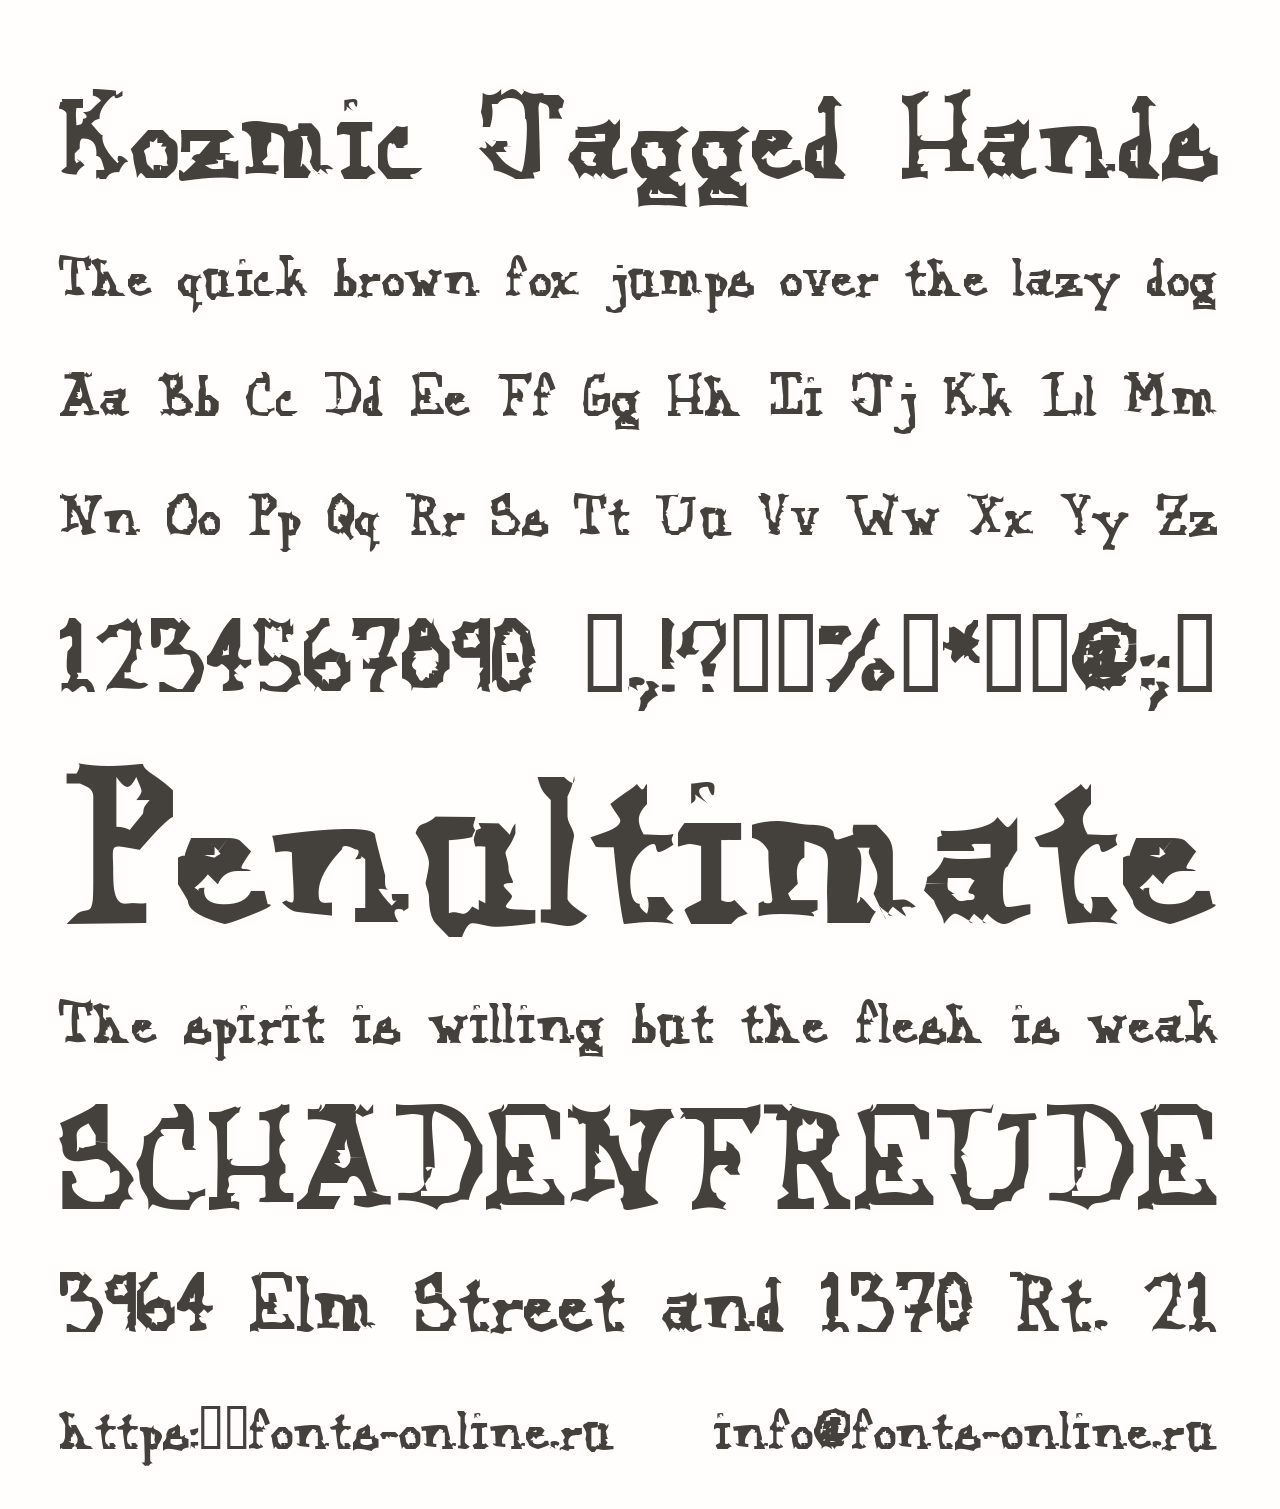 Kozmic Jagged Hands
The quick brown fox jumps over the lazy dog
Aa Bb Cc Dd Ee Ff Gg Hh Ii Jj Kk Ll Mm
Nn Oo Pp Qq Rr Ss Tt Uu Vv Ww Xx Yy Zz
1234567890 ▯,!?▯▯%▯*▯▯@;▯
Penultimate
The spirit is willing but the flesh is weak
SCHADENFREUDE
3964 Elm Street and 1370 Rt. 21
https:▯▯fonts-online.ru info@fonts-online.ru